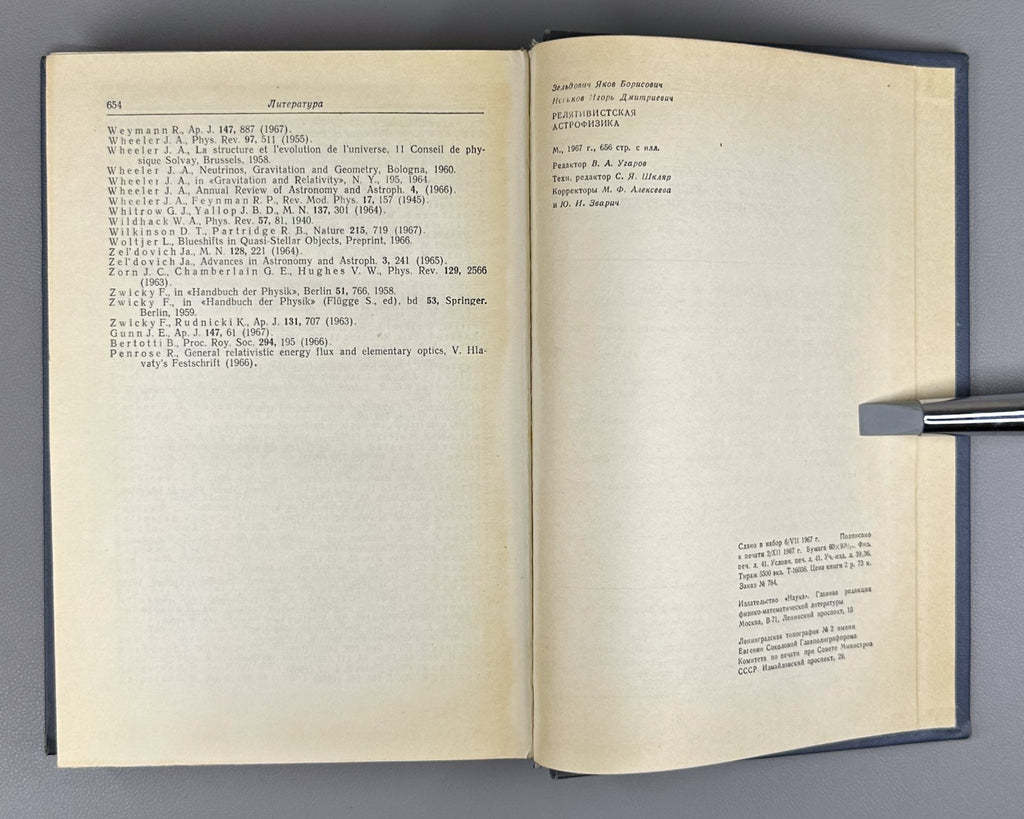 654
Литература
Weymann R., Ap. J. 147, 887 (1967).
Wheeler J. A., Phys. Rev. 97, 511 (1955).
Wheeler J. A., La structure et l'evolution de l'universe, 11 Conseil de phy-
sique Solvay, Brussels, 1958.
Wheeler J. A., Neutrinos, Gravitation and Geometry, Bologna, 1960.
Wheeler J. A., in «Gravitation and Relativity», N. Y., 195, 1964.
Wheeler J. A., Annual Review of Astronomy and Astroph. 4, (1966).
Wheeler J. A., Feynman R. P., Rev. Mod. Phys. 17, 157 (1945).
Whitrow G. J., Yallop J. B. D., M. N. 137, 301 (1964).
Wildhack W. A., Phys. Rev. 57, 81, 1940.
Wilkinson D. T., Partridge R. B., Nature 215, 719 (1967).
Woltjer L., Blueshifts in Quasi-Stellar Objects, Preprint, 1966.
Zel'dovich Ja., M. N. 128, 221 (1964).
Zel'dovich Ja., Advances in Astronomy and Astroph. 3, 241 (1965).
Zorn J. C., Chamberlain G. E., Hughes V. W., Phys. Rev. 129, 2566
(1963).
Zwicky F., in «Handbuch der Physik», Berlin 51, 766, 1958.
Zwicky F., in «Handbuch der Physik» (Flügge S., ed), bd 53, Springer.
Berlin, 1959.
Zwicky F., Rudnicki K., Ap. J. 131, 707 (1963).
Gunn J. E., Ap. J. 147, 61 (1967).
Bertotti B., Proc. Roy. Soc. 294, 195 (1966).
Penrose R., General relativistic energy flux and elementary optics, V. Hla-
vaty's Festschrift (1966).
Зельдович Яков Борисович
Игорь Дмитриевич
РЕЛЯТИВИСТСКАЯ
АСТРОФИЗИКА
М., 1967 г., 656 стр. с илл.
Редактор В. А. Угаров
Техн. редактор С. Я. Шкляр
Корректоры М. Ф. Алексеева
и Ю. И. Зварич
Сдано в набор 6/VII 1967 г. Подписано
к печати 2/XII 1967 г. Бумага Физ.
печ. л. 41. Условн. печ. л. 41. Уч.-изд. л. 39,36.
Тираж 5500 экз. Т-16036. Цена книги 2 р. 73 к.
Заказ № 784.
Издательство «Наука». Главная редакция
физико-математической литературы
Москва, В-71, Ленинский проспект, 15
Ленинградская типография № 2 имени
Евгении Соколовой Главполиграфпрома
Комитета по печати при Совете Министров
СССР. Измайловский проспект, 29.